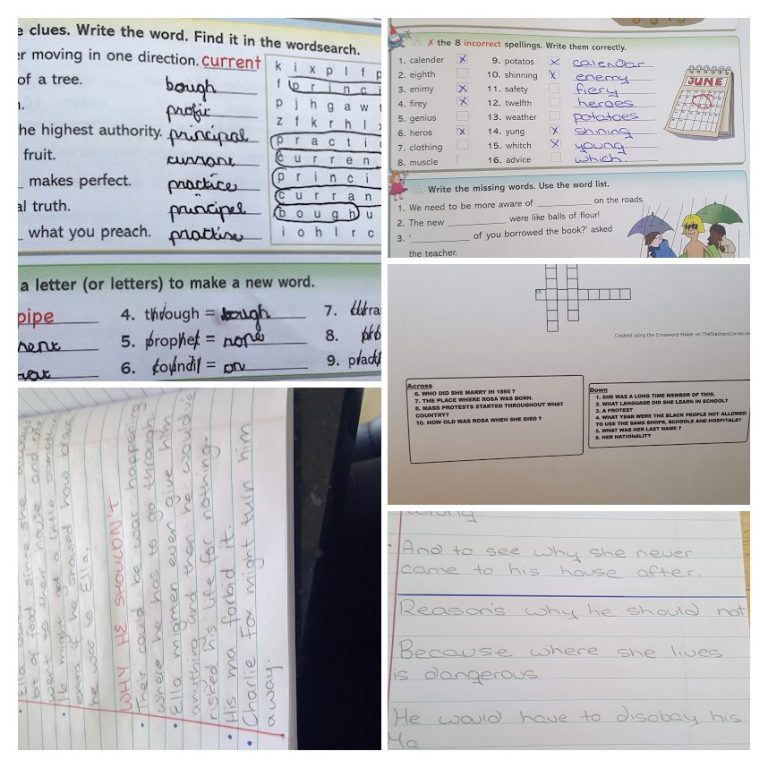 e clues. Write the word. Find it in the wordsearch.
er moving in one direction. current
of a tree. bough
n. profit
he highest authority. principal
fruit. currant
_ makes perfect. practice
al truth. principel
_ what you preach. practise
k i x p l f p
f p r i n c i
p j h g a w f
z f k r h l
p r a c t i
c u r r e n
p r i n c i
c u r r a n
b o u g h u
i o h l r c
a letter (or letters) to make a new word.
pipe 4. through = tough 7.
5. prophet = rope 8.
6. council = on 9.
✗ the 8 incorrect spellings. Write them correctly.
1. calender x 9. potatos x calendar
2. eighth 10. shinning x enemy
3. enimy x 11. safety fiery
4. firey x 12. twelfth heroes
5. genius 13. weather potatoes
6. heros x 14. yung x shining
7. clothing 15. whitch x young
8. muscle 16. advice which
JUNE
Write the missing words. Use the word list.
1. We need to be more aware of ________ on the roads.
2. The new ________ were like balls of flour!
3. '________ of you borrowed the book?' asked
the teacher.
Created using the Crossword Maker on TheTeachersCorner.ne
Across
6. WHO DID SHE MARRY IN 1895 ?
7. THE PLACE WHERE ROSA WAS BORN.
8. MASS PROTESTS STARTED THROUGHOUT WHAT
COUNTRY?
10. HOW OLD WAS ROSA WHEN SHE DIED ?
Down
1. SHE WAS A LONG TIME MEMBER OF THIS.
2. WHAT LANGUAGE DID SHE LEARN IN SCHOOL?
3. A PROTEST
4. WHAT YEAR WERE THE BLACK PEOPLE NOT ALLOWED
TO USE THE SAME SHOPS, SCHOOLS AND HOSPITALS?
5. WHAT WAS HER LAST NAME ?
9. HER NATIONALITY
bit of food since she
went to their house and
He might get a little
extra if he showed how
he was to Ella.
WHY HE SHOULDN'T
• Their could be war happening
where he has to go through.
• Ella mighten even give him
anything and then he would've
risked his life for nothing.
• His ma forbid it.
• Charlie Fox might turn him
away.
And to see why she never
came to his house after.
Reason's why he should not
Because where she lives
is dangerous
He would have to disobay his
Ma